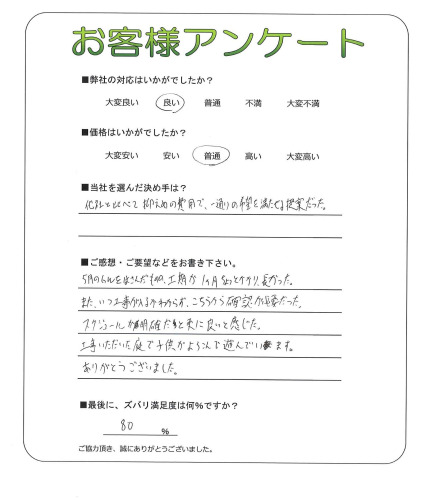 お客様アンケート
■弊社の対応はいかがでしたか？
大変良い 良い 普通 不満 大変不満
■価格はいかがでしたか？
大変安い 安い 普通 高い 大変高い
■当社を選んだ決め手は？
他社と比べて抑えめの費用で、一通りの希望を満たせる提案だった。
■ご感想・ご要望などをお書き下さい。
5月のGWをはさんだものの、工期が1ヶ月ちょっとかかり、長かった。
また、いつ工事が入るかわからず、こちらから確認が必要だった。
スケジュールが明確だと更に良いと感じた。
工事いただいた庭で子供がよろこんで遊んでいます。
ありがとうございました。
■最後に、ズバリ満足度は何％ですか？
80 ％
ご協力頂き、誠にありがとうございました。